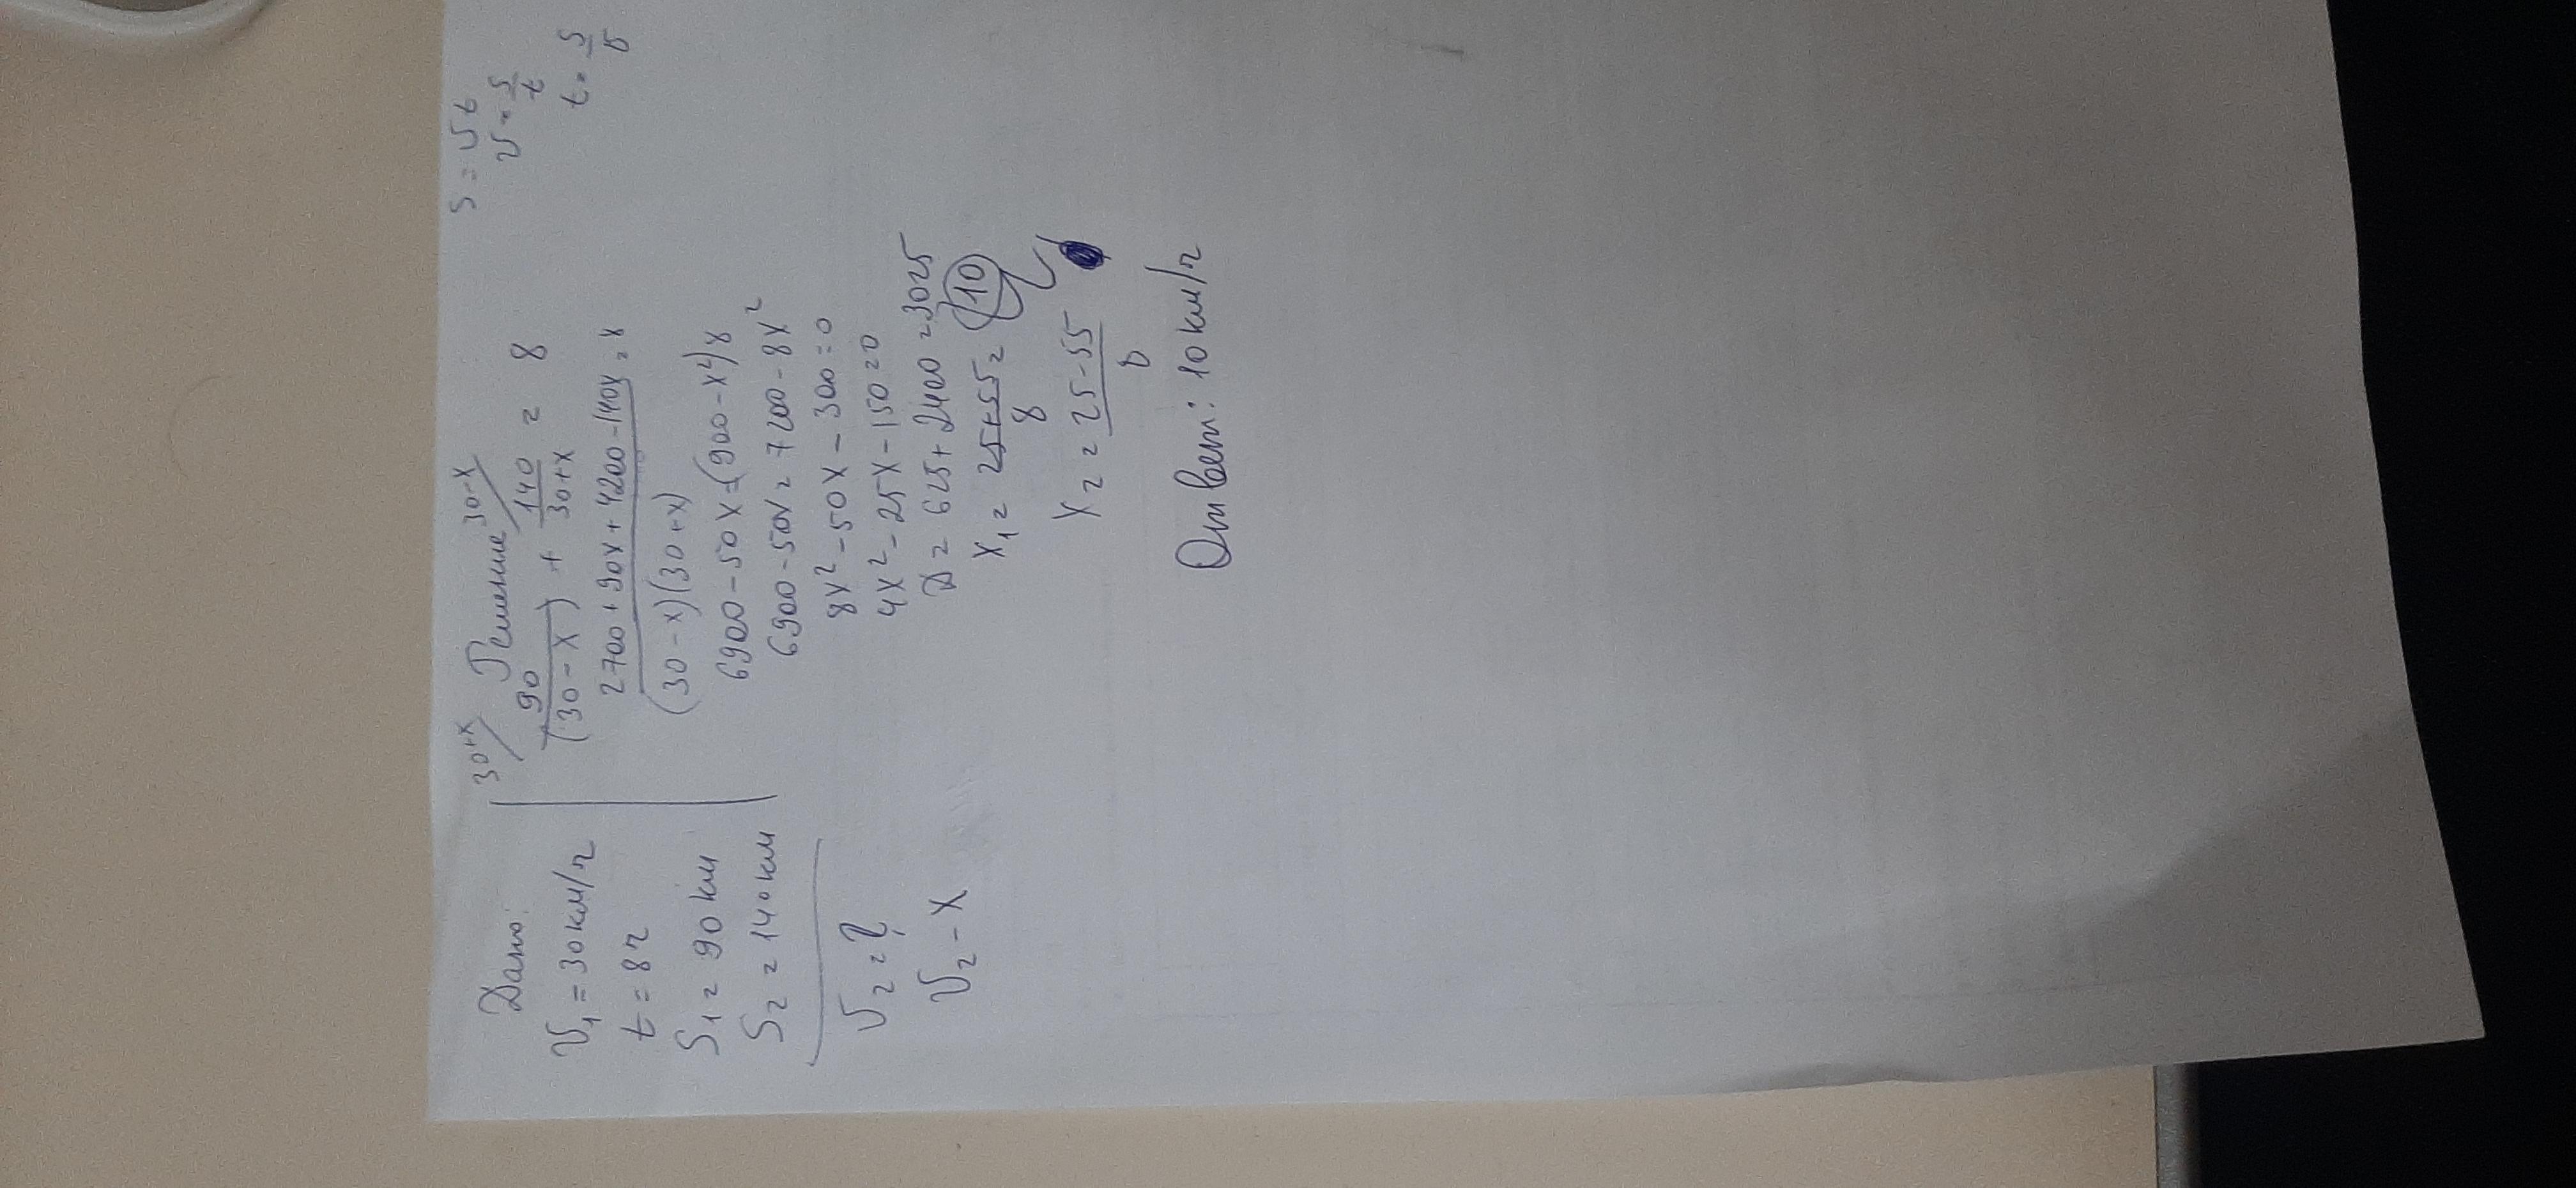 S = vt
v = S/t
t = S/v
Дано:
v₁ = 30 км/ч
t = 8 ч
S₁ = 90 км
S₂ = 140 км
v₂ = ?
v₂ - x
Решение
30+x/ 90/(30-x) + 30-x/ 140/30+x = 8
2700 + 90x + 4200 - 140x/(30-x)(30+x) = 8
6900 - 50x = (900 - x²)8
6900 - 50x = 7200 - 8x²
8x² - 50x - 300 = 0
4x² - 25x - 150 = 0
D = 625 + 2400 = 3025
x₁ = 25+55/8 = 10
x₂ = 25-55/8
Ответ: 10 км/ч